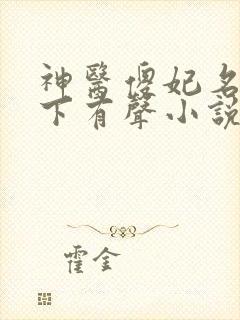 神醫傻妃名
下有聲小說
霍金